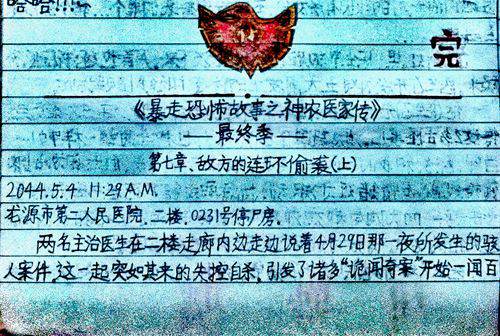 哈哈!!!
完
《暴走恐怖故事之神农医家传》
——最终季——
第七章、敌方的连环偷袭(上)
2044.5.4 11:29A.M.
龙源市第二人民医院. 二楼. 0231号停尸房.
两名主治医生在二楼走廊内边走边说着4月29日那一夜所发生的骇
人案件. 这一起突如其来的失控自杀, 引发了诸多“诡闻奇案”开始一闻百